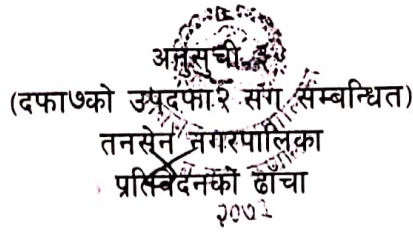 अनुसुची
(दफा७को उपदफा२ संग सम्बन्धित)
तनसेन नगरपालिका
प्रतिवेदनको ढाँचा